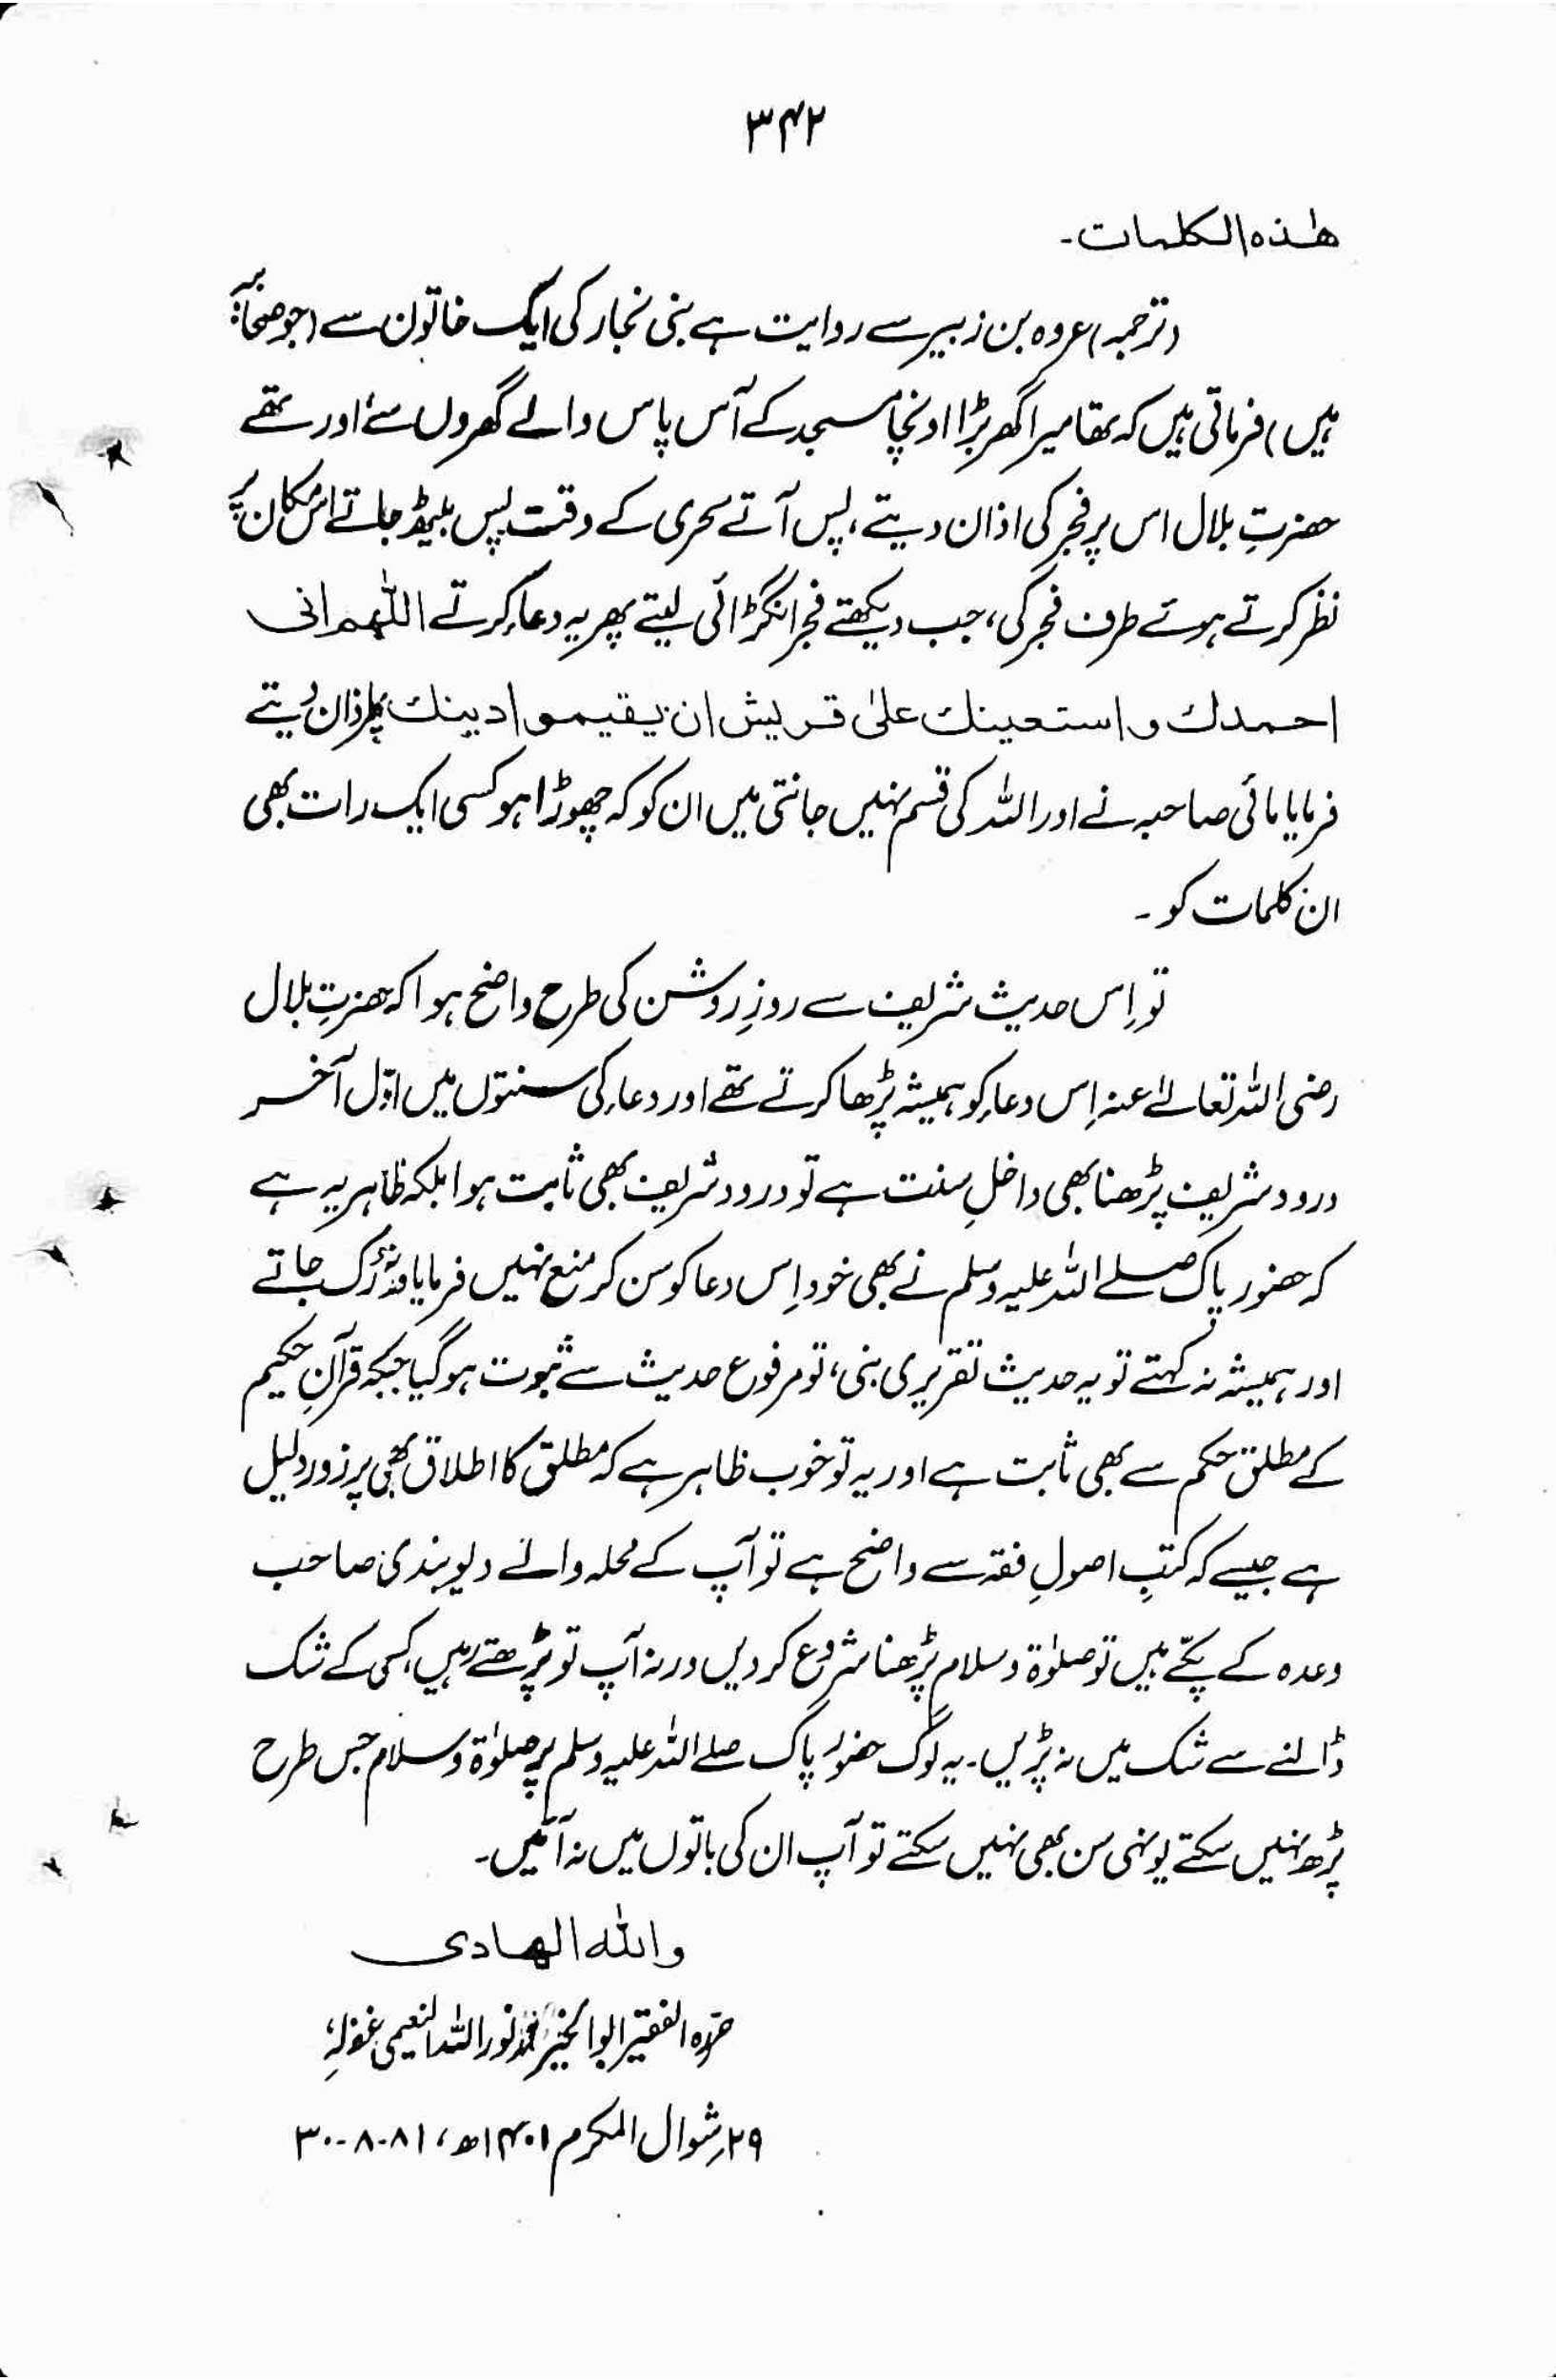 ۳۴۲
ھٰذہ الکلمات۔
(ترجمہ) عروہ بن زبیر سے روایت ہے بنی نجار کی ایک خاتون سے (جو صحابیہ
ہیں) فرماتی ہیں کہ تھا میرا گھر بڑا اونچا مسجد کے آس پاس والے گھروں سے، اور تھے
حضرتِ بلال اس پر فجر کی اذان دیتے، پس آتے سحری کے وقت پس بیٹھ جاتے اس مکان پر
نظر کرتے ہوئے طرف فجر کی، جب دیکھتے فجر انگڑائی لیتے پھر یہ دعا کرتے اللّٰھم انی
احمدك و استعینك علیٰ قریش ان یقیموا دینك پھر اذان دیتے
فرمایا مائی صاحبہ نے اور اللہ کی قسم نہیں جانتی میں ان کو کہ چھوڑا ہو کسی ایک رات بھی
ان کلمات کو۔
تو اِس حدیث شریف سے روزِ روشن کی طرح واضح ہوا کہ حضرتِ بلال
رضی اللہ تعالےٰ عنہ اِس دعاء کو ہمیشہ پڑھا کرتے تھے اور دعاء کی سنتوں میں اوّل آخر
درود شریف پڑھنا بھی داخلِ سنت ہے تو درود شریف بھی ثابت ہوا بلکہ ظاہر یہ ہے
کہ حضور پاک صلے اللہ علیہ وسلم نے بھی خود اِس دعا کو سن کر منع نہیں فرمایا ورنہ رُک جاتے
اور ہمیشہ نہ کہتے تو یہ حدیث تقریری بنی، تو مرفوع حدیث سے ثبوت ہو گیا جبکہ قرآنِ حکیم
کے مطلق حکم سے بھی ثابت ہے اور یہ تو خوب ظاہر ہے کہ مطلق کا اطلاق بھی پر زور دلیل
ہے جیسے کہ کتبِ اصولِ فقہ سے واضح ہے تو آپ کے محلہ والے دیوبندی صاحب
وعدہ کے پکّے ہیں تو صلوٰۃ و سلام پڑھنا شروع کر دیں ورنہ آپ تو پڑھتے رہیں، کسی کے شک
ڈالنے سے شک میں نہ پڑیں۔ یہ لوگ حضور پاک صلے اللہ علیہ وسلم پر صلوٰۃ و سلام جس طرح
پڑھ نہیں سکتے یونہی سن بھی نہیں سکتے تو آپ ان کی باتوں میں نہ آئیں۔
واللہ الھادی
حررہ الفقیر ابو الخیر محمد نور اللہ النعیمی غفرلہ،
۲۹ شوال المکرم ۱۴۰۱ھ، ۸۱-۸-۳۰